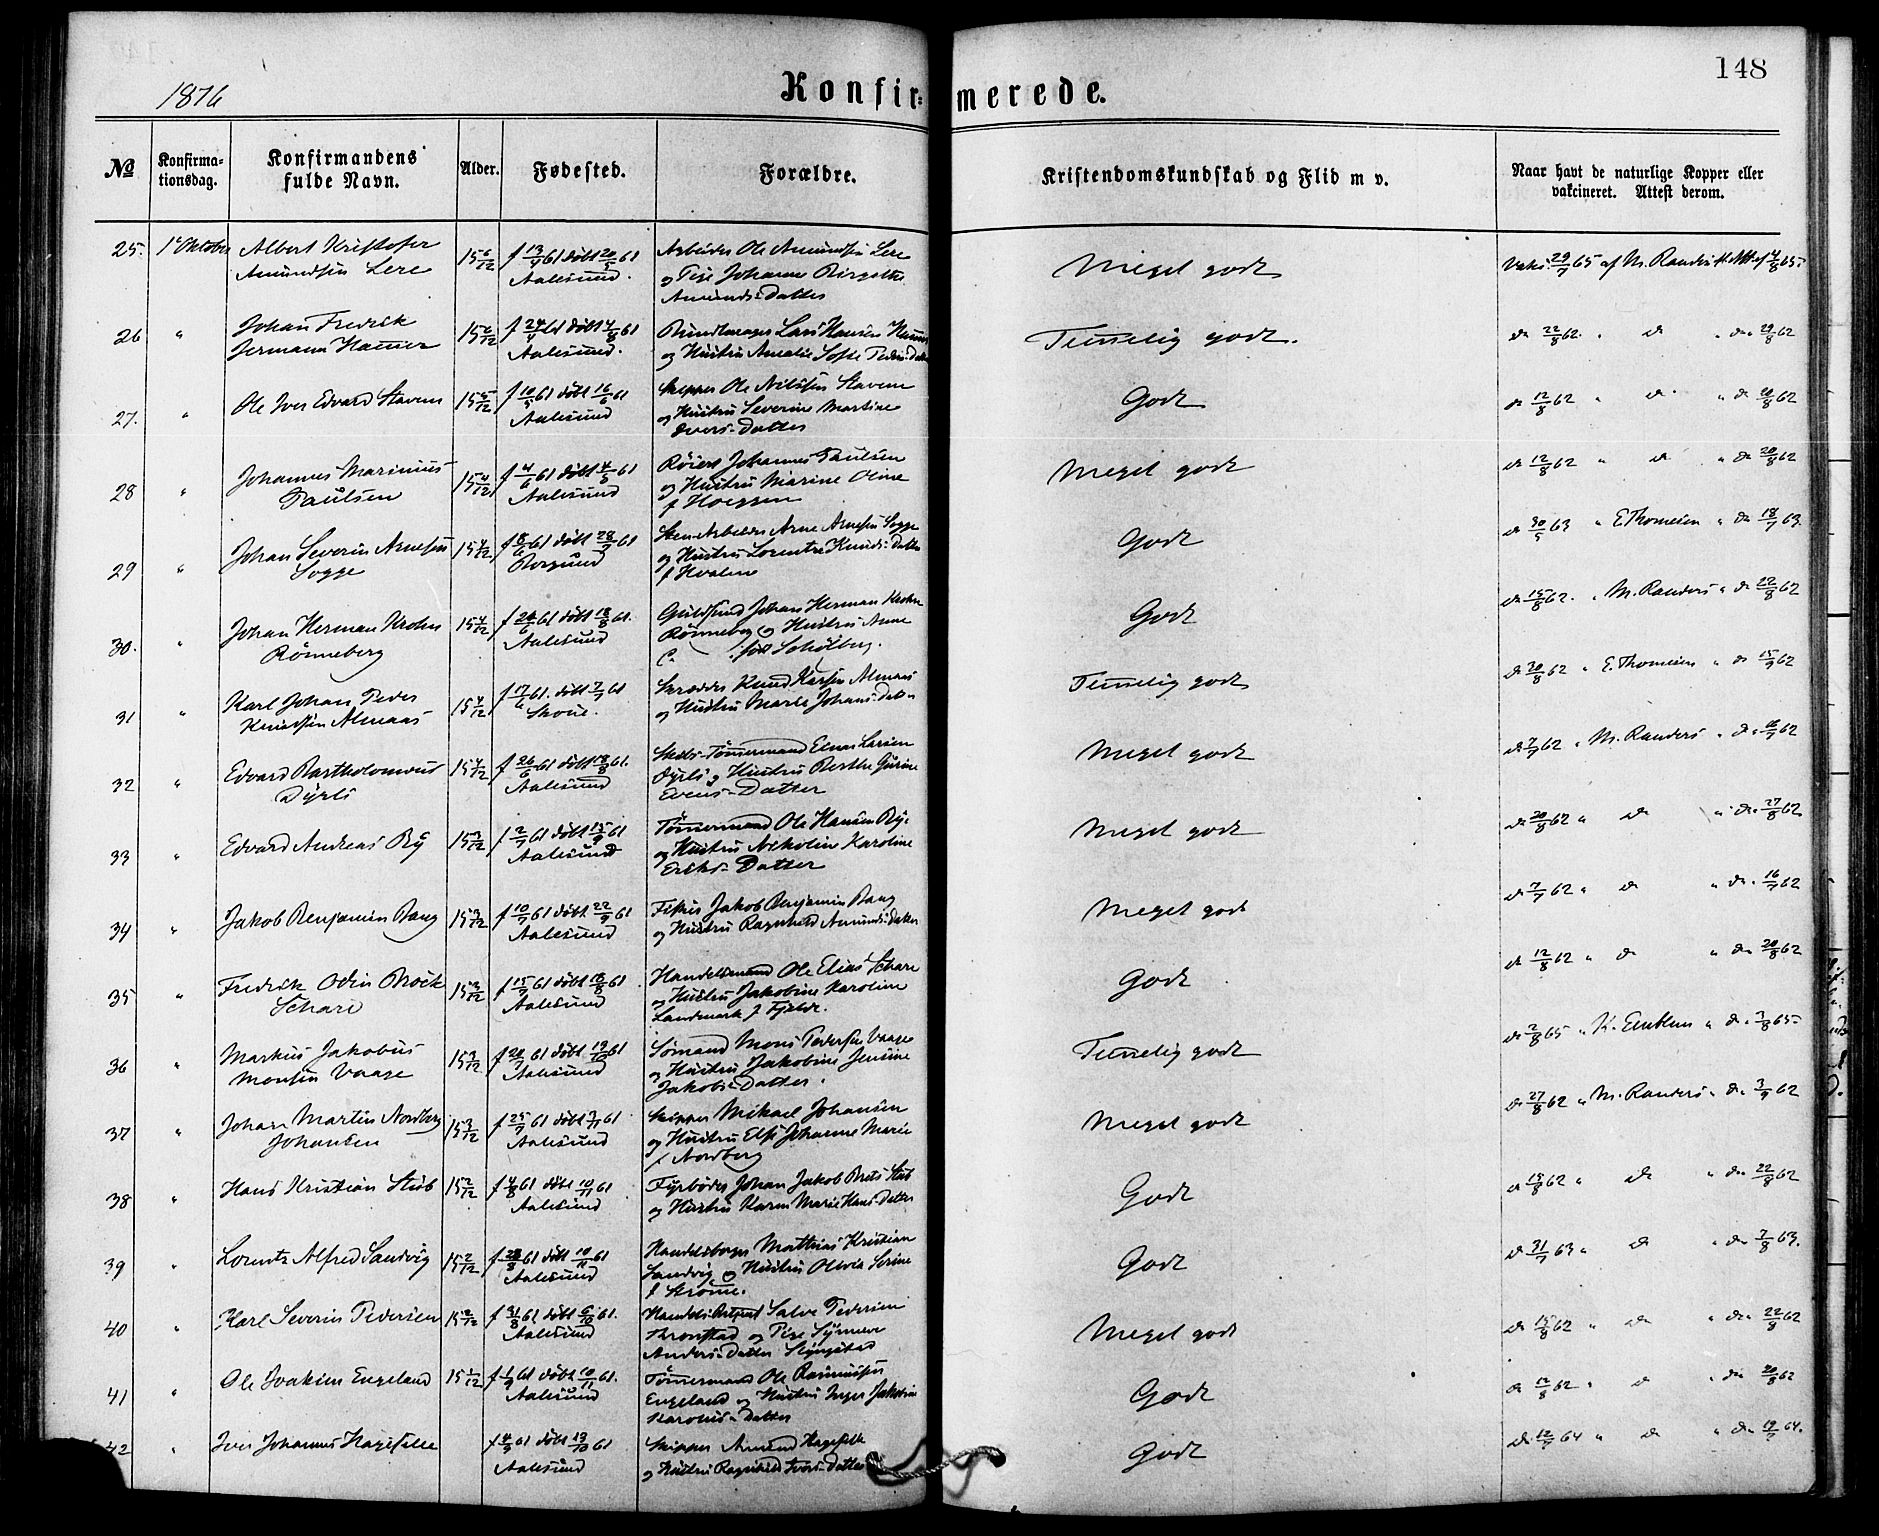 148
1876
Konfirmerede.
№
Konfirmationsdag.
Konfirmandens fulde Navn.
Alder.
Fødested.
Forældre.
Kristendomskundskab og Flid m v.
Naar havt de naturlige Kopper eller vakcineret. Attest derom.
25. 1' Oktober Albert Kristofer 15 6/12 f 13/4 61 døbt 20/5 61 Arbeider Ole Amundsen Lere
Amundsen Lere Aalesund. og Pige Johanne
Amunds-Datter
Meget godt
Vaks. 29/7 65 af M. Randers Att. af 4/8 65.
26 " Johan Fredrik 15 6/12 f 24/4 61 døbt 4/8 61 Lars Hansen
Aalesund. og Hustru Amalie Sofie Peders-Datter
Temmelig godt.
do 22/8 62. " do " do 29/8 62
27. " Ole Iver Edvard Stavem 15 5/12 f 10/5 61 døbt 16/6 61 Skipper Ole Nilssen Stavem
Aalesund og Hustru Severine Martine
Ivers-Datter
Godt
do 12/8 62 " do " do 20/8 62
28 " Johannes Marinius 15 4/12 f 4/6 61 døbt 4/8 61 Røiert Johannes Paulsen
Paulsen Aalesund og Hustru Marine Oline
f Hoeggen
Meget godt
do 12/8 62 " do " do 20/8 62
29 " Johan Severin Arnesen 15 4/12 f 8/6 61 døbt 28/7 61 Sten-Arbeider Arne Arnesen Sogge
Sogge Borgund og Hustru Lorentze Knuds-Datter
f Hvalen
Godt
do 30/5 63 " E Thomesen " do 18/7 63.
30. " Johan Herman Krohn 15 4/12 f 24/6 61 døbt 18/8 61. Guldsmed Johan Herman Krohn
Rønneberg Aalesund Rønneberg og Hustru Anne
C. født Schølberg.
Godt
do 15/8 62. " M. Randers " do 22/8 62
31 " Karl Johan Peder 15 4/12 f 17/6 61. døbt 7/7 61 Skrædder Knud Karsen Almaas
Knudssen Almaas Skoue. og Hustru Marte Johans-Datter
Temmelig godt
do 30/8 62 " E. Thomesen " do 15/9 62
32 " Edvard Bartholomæus 15 4/12 f 26/6 61 døbt 18/8 61. Skibs-Tømmermand Einar Larsen
Dyrli Aalesund Dyrli og Hustru Berthe Gurine
Evens-Datter
Meget godt
do 7/7 62 " M. Randers " do 16/7 62
33 " Edvard Andreas Ry 15 3/12 f 2/7 61 døbt 15/9 61 Tømmermand Ole Hansen Ry.
Aalesund og Hustru Nikoline Karoline
Eriks-Datter
Meget godt
do 20/8 62 " do " do 27/8 62.
34 " Jakob Benjamin Bang 15 3/12 f 10/7 61 døbt 22/9 61 Fisker Jakob Benjamin Bang
Aalesund og Hustru Ragnhild Amunds-Datter
Meget godt
do 7/7 62 " do " do 16/7 62
35 " Fredrik Odin Brock 15 3/12 f 15/7 61 døbt 18/8 61 Handelsmand Ole Elias Schare
Schare Aalesund og Hustru Jakobine Karoline
Landmark f Fjelde.
Godt
do 12/8 62 " do " do 20/8 62
36 " Markus Jakobus 15 3/12 f 20/7 61 døbt 13/10 61 Sømand Mons Pedersen Vaage
Monsen Vaage Aalesund og Hustru Jakobine Jensine
Jakobs-Datter.
Temmelig godt
do 2/8 65 " K. Emblem " do 3/8 65.
37 " Johan Martin Nordberg 15 3/12 f 25/7 61 døbt 3/11 61 Skipper Mikael Johansen
Johansen Aalesund og Hustru Else Johanne Marie
f. Nordberg
Meget godt
do 27/8 62 " M. Randers " do 3/9 62
38 " Hans Kristian Stub 15 2/12 f 4/8 61 døbt 10/11 61 Fyrbøder Johan Jakob Brets Stub
Aalesund og Hustru Karen Marie Hans-Datter
Godt
do 15/8 62 " do " do 22/8 62
39 " Lorentz Alfred Sandvig 15 2/12 f 28/8 61 døbt 10/11 61 Handelsborger Matthias Kristian
Aalesund Sandvig og Hustru Olivia Serine
f Strømme.
Godt
do 31/7 63 " do " do 7/8 63.
40 " Karl Severin Pedersen 15 2/12 f 31/8 61 døbt 6/10 61. Salve Pedersen
Aalesund Thronstad og Pige Synneve
Anders-Datter
Meget godt
do 15/8 62 " do " do 22/8 62
41 " Ole Joakim Engeland 15 1/12 f 1/9 61 døbt 10/11 61. Tømmermand Ole Rasmussen
Aalesund Engeland og Hustru Inger Jakobine
Karolus-Datter
Godt
do 12/8 62 " do " do 20/8 62
42 " Iver Johannes Hagefelle f 4/9 61 døbt 13/10 61 Skipper Amund Hagefelle
Aalesund og Hustru Ragnhild Ivers-Datter
Godt
do 12/7 64 " do " do 19/7 64.